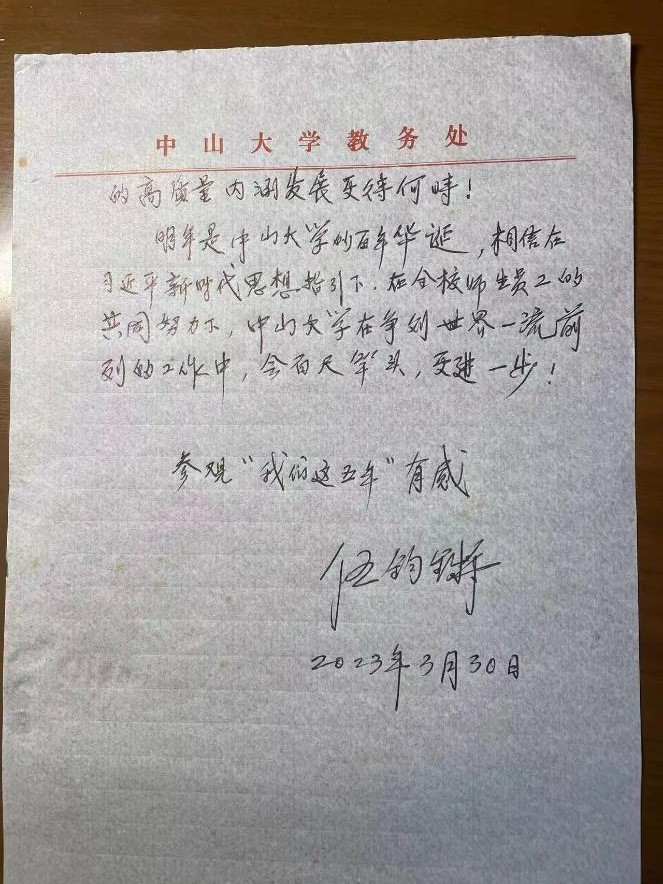 中山大学教务处
的高质量内涵发展更待何时!
明年是中山大学的百年华诞,相信在
习近平新时代思想指引下.在全校师生员工的
共同努力下,中山大学在争列世界一流前
列的工作中,会百尺竿头,更进一步!
参观“我们这五年”有感
伍钧
2023年3月30日